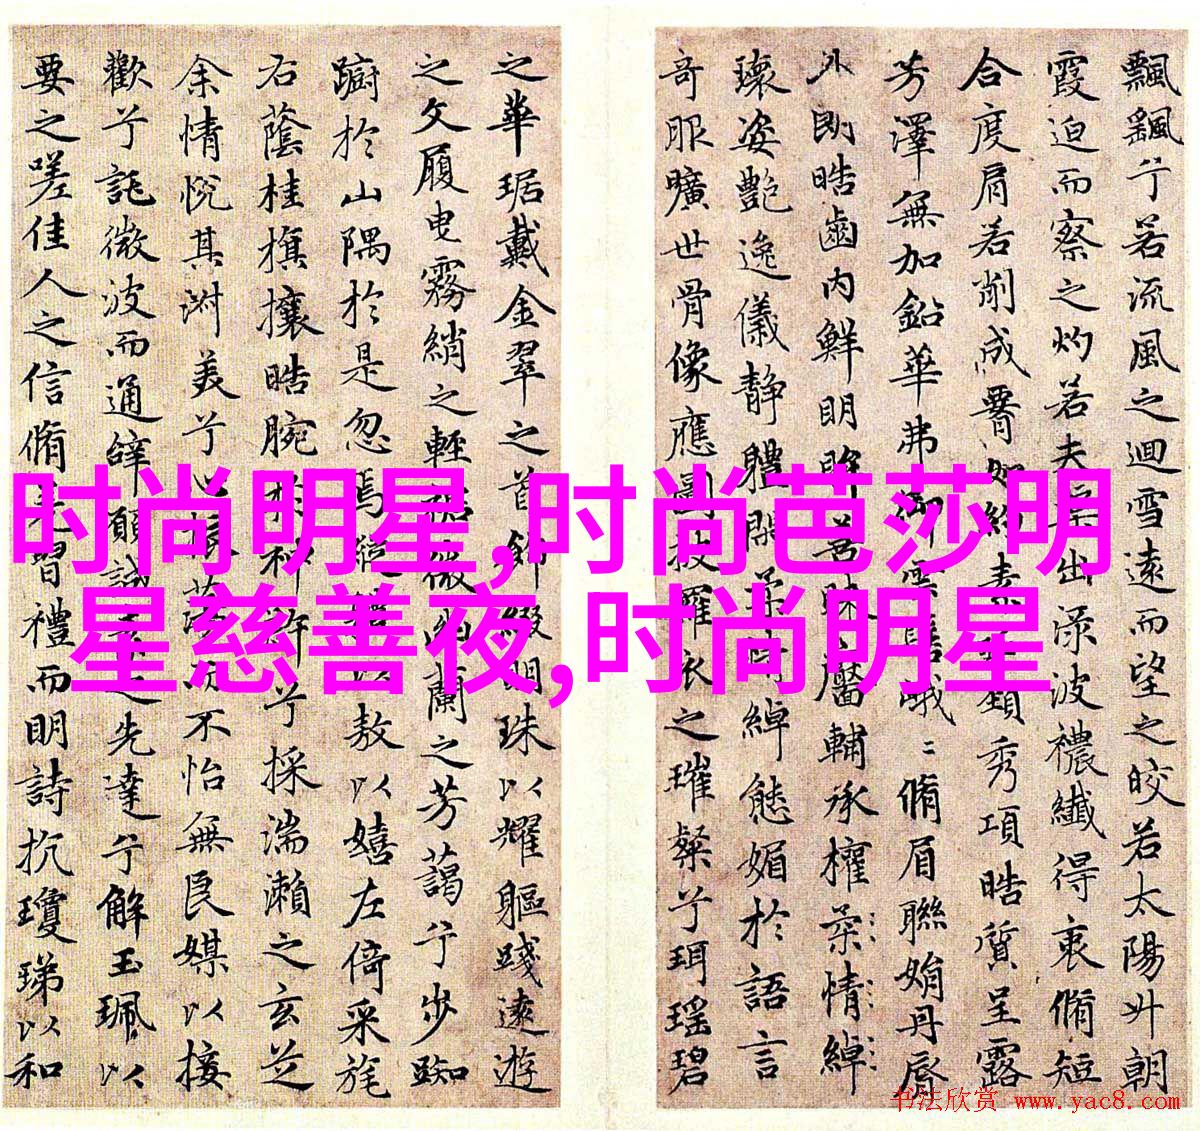 飄飖兮若流風之迴雪遠而望之皎若太陽升朝
霞迫而察之灼若夫蕖出淥波襛纖得衷脩短
合度肩若削成署如約素延頸秀項皓質呈露
芳澤無加鉛華弗御雲髻峨ミ脩眉聯娟丹脣
外朗皓齒內鮮明眸善睞靨輔承權柔情綽
瓌姿艷逸儀靜體閑柔情綽態媚於語言
奇服曠世骨像應圖披羅衣之璀粲兮珥瑤碧
之華琚戴金翠之首飾綴明珠以耀軀踐遠遊
之文履曳霧綃之輕裾微幽蘭之芳藹兮步踟
躕於山隅於是忽焉縱體以敖以嬉左倚采旄
右蔭桂旗攘皓腕於神滸兮採湍瀨之玄芝
余情悅其淑美兮心振蕩而不怡無良媒以接
歡兮託微波而通辭願誠素之先達兮解玉珮以
要之嗟佳人之信脩羌習禮而明詩抗瓊珶以和
时尚明星,时尚芭莎明
星慈善夜,时尚明星
书法欣赏 www.yac8.com